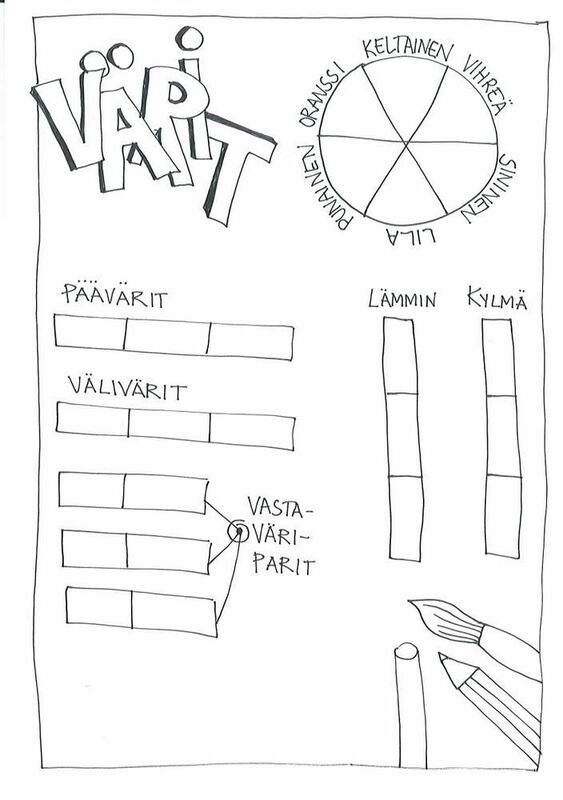 VÄRIT
KELTAINEN
VIHREÄ
SININEN
LILA
PUNAINEN
ORANSSI
PÄÄVÄRIT
VÄLIVÄRIT
VASTA-
VÄRI-
PARIT
LÄMMIN
KYLMÄ